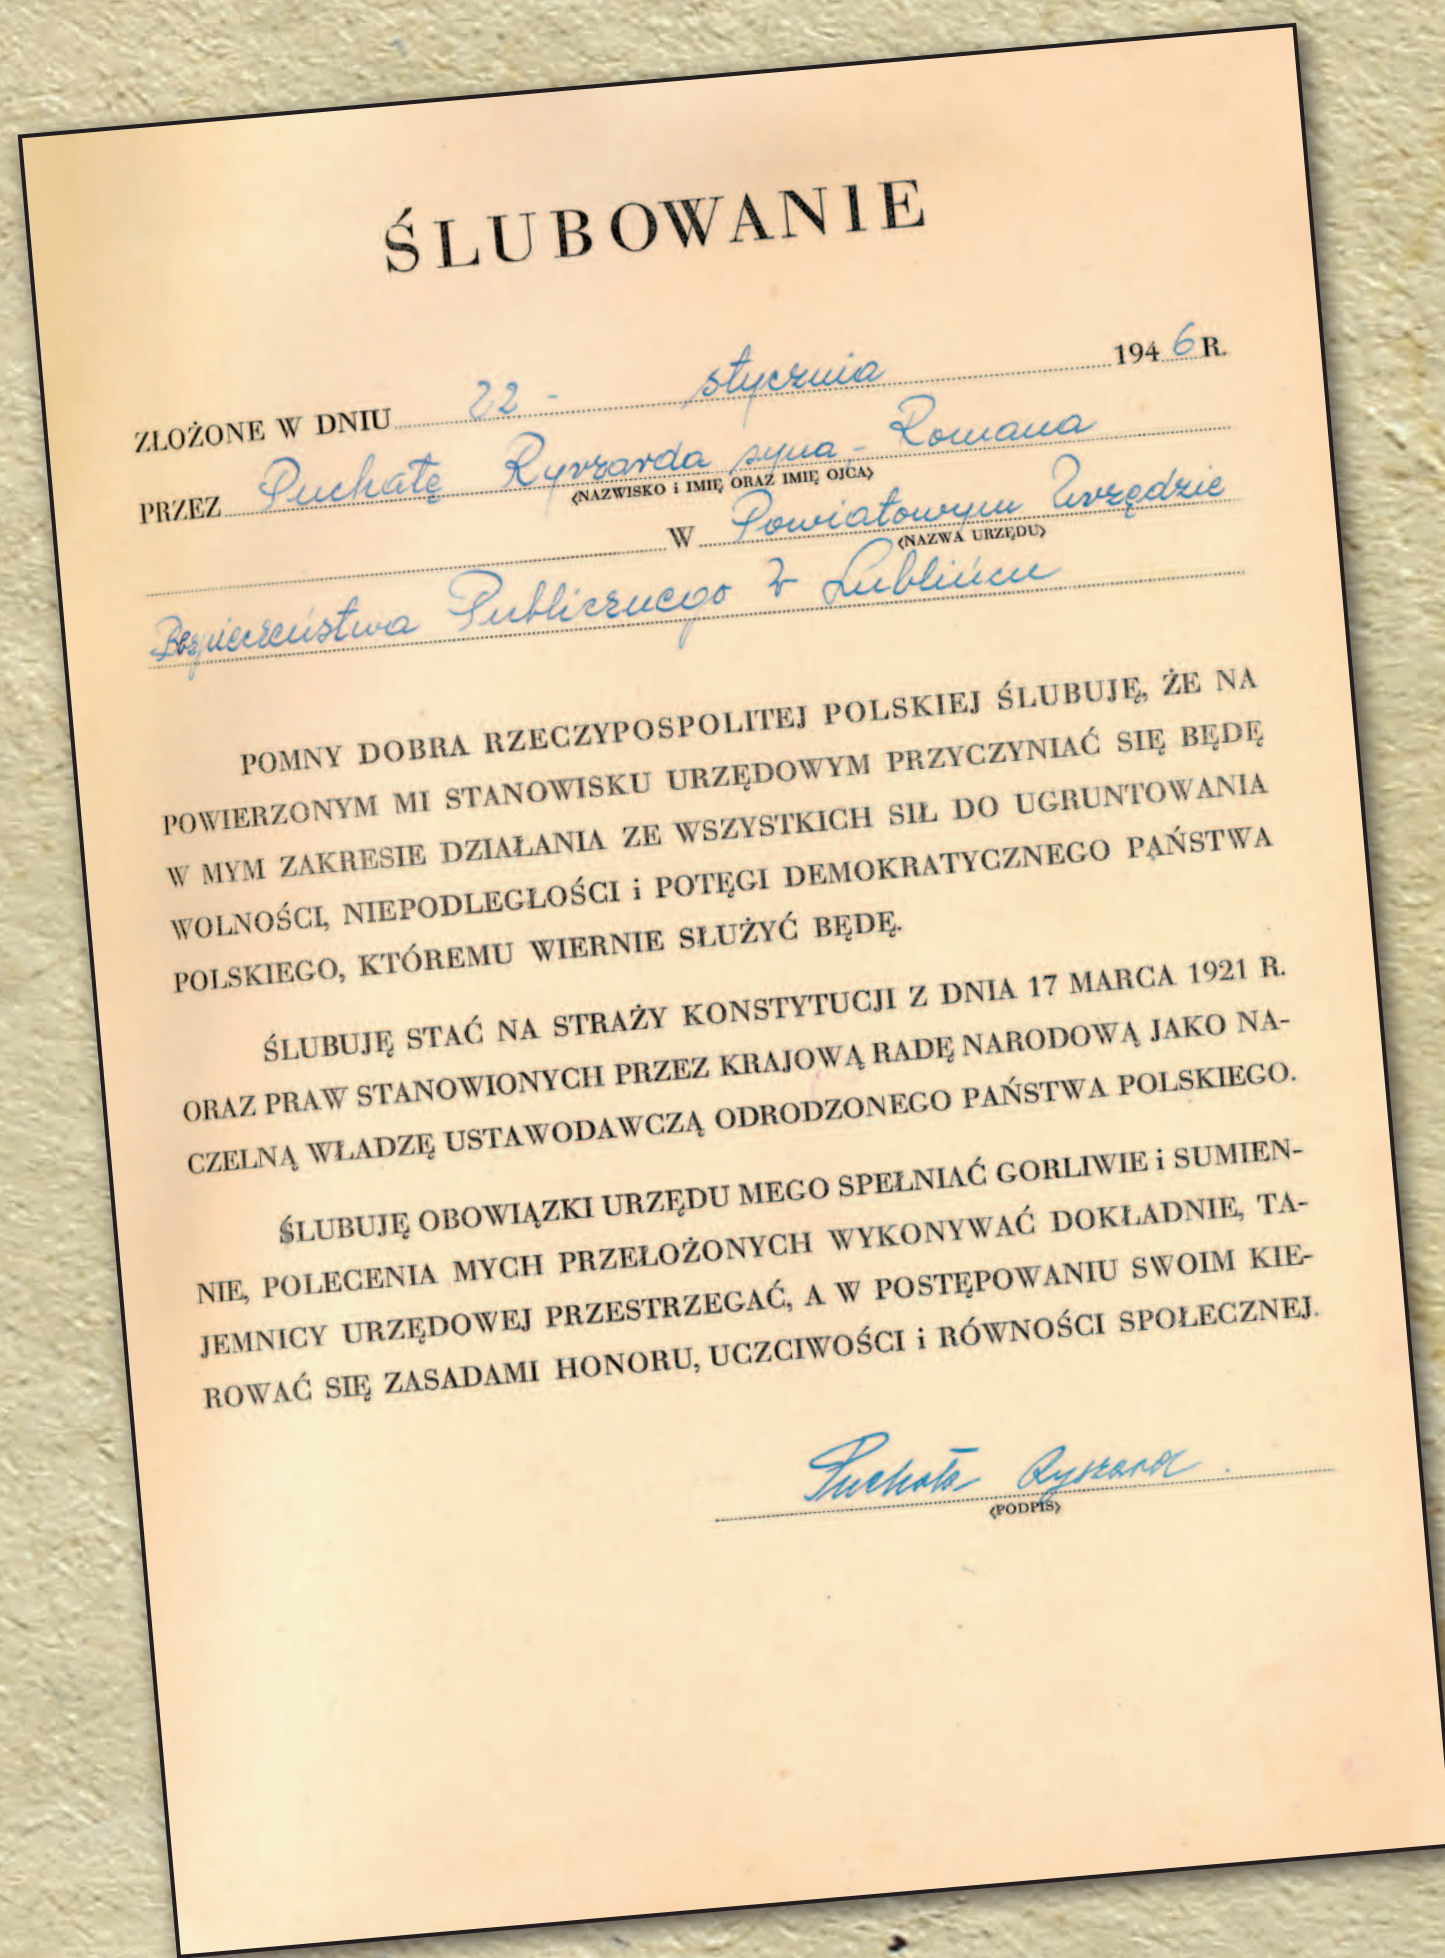 ŚLUBOWANIE
ZŁOŻONE W DNIU 22 - stycznia 1946 R.
PRZEZ Puchałę Ryszarda syna - Romana
(NAZWISKO i IMIĘ ORAZ IMIĘ OJCA)
W Powiatowym Urzędzie
(NAZWA URZĘDU)
Bezpieczeństwa Publicznego w Lublińcu
POMNY DOBRA RZECZYPOSPOLITEJ POLSKIEJ ŚLUBUJĘ, ŻE NA
POWIERZONYM MI STANOWISKU URZĘDOWYM PRZYCZYNIAĆ SIĘ BĘDĘ
W MYM ZAKRESIE DZIAŁANIA ZE WSZYSTKICH SIŁ DO UGRUNTOWANIA
WOLNOŚCI, NIEPODLEGŁOŚCI i POTĘGI DEMOKRATYCZNEGO PAŃSTWA
POLSKIEGO, KTÓREMU WIERNIE SŁUŻYĆ BĘDĘ.
ŚLUBUJĘ STAĆ NA STRAŻY KONSTYTUCJI Z DNIA 17 MARCA 1921 R.
ORAZ PRAW STANOWIONYCH PRZEZ KRAJOWĄ RADĘ NARODOWĄ JAKO NA-
CZELNĄ WŁADZĘ USTAWODAWCZĄ ODRODZONEGO PAŃSTWA POLSKIEGO.
ŚLUBUJĘ OBOWIĄZKI URZĘDU MEGO SPEŁNIAĆ GORLIWIE i SUMIEN-
NIE, POLECENIA MYCH PRZEŁOŻONYCH WYKONYWAĆ DOKŁADNIE, TA-
JEMNICY URZĘDOWEJ PRZESTRZEGAĆ, A W POSTĘPOWANIU SWOIM KIE-
ROWAĆ SIĘ ZASADAMI HONORU, UCZCIWOŚCI i RÓWNOŚCI SPOŁECZNEJ.
Puchała Ryszard
(PODPIS)